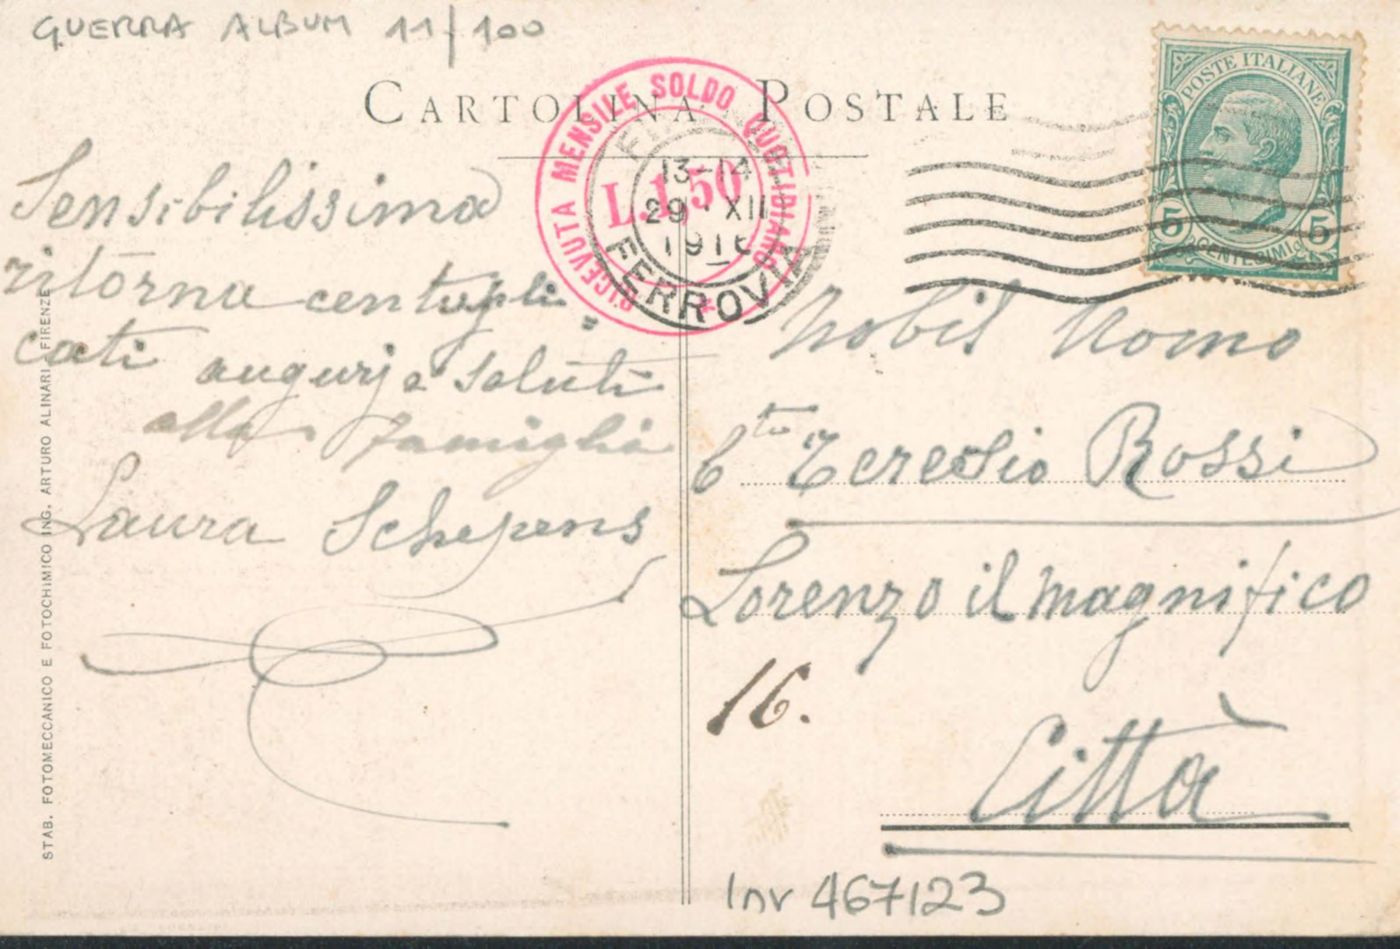 GUERRA ALBUM 11/100
CARTOLINA POSTALE
RICEVUTA MENSILE SOLDO QUOTIDIANO
L.1,50
13-14
29 XII
191
FERROVIA
POSTE ITALIANE
5 CENTESIMI 5
Sensibilissima
ritorna centupli„
cati augurj e saluti
alla famiglia
Laura Schepens
Nobil Uomo
Cte Teresio Rossi
Lorenzo il Magnifico
16.
Città
STAB. FOTOMECCANICO E FOTOCHIMICO ING. ARTURO ALINARI, FIRENZE
Inv 467123